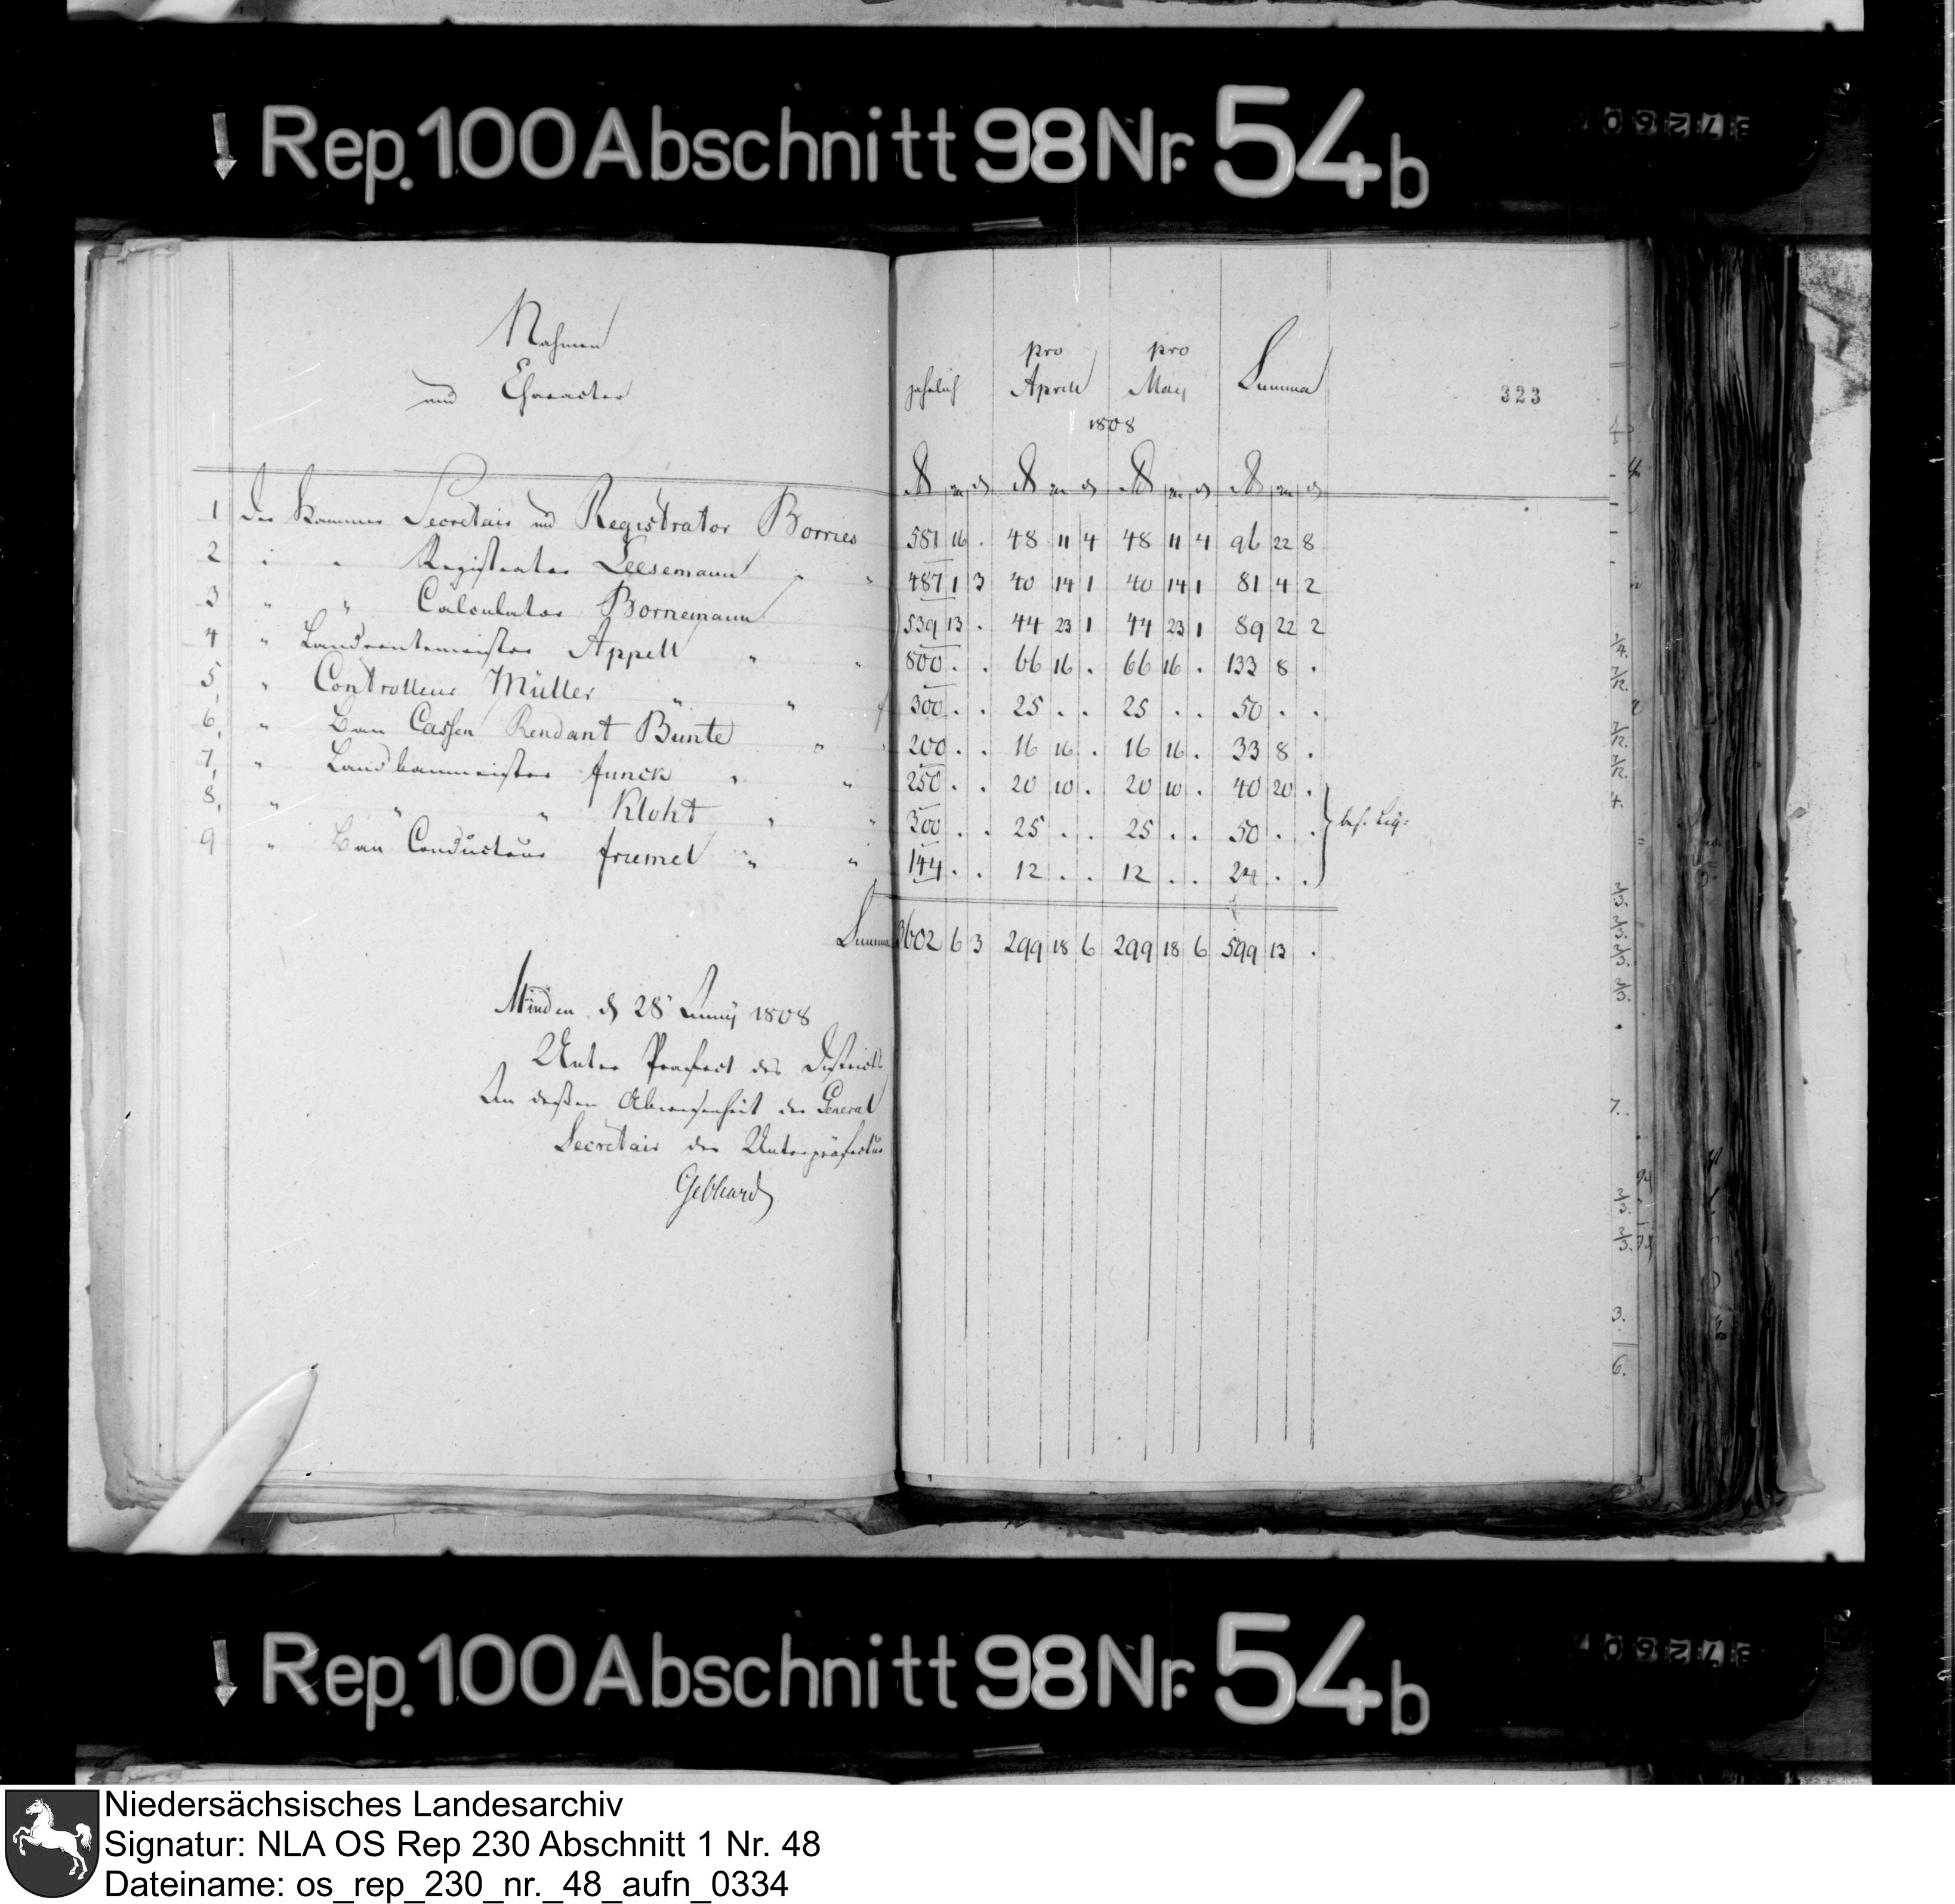 Rep. 100 Abschnitt 98 Nr. 54b
Nahmen
und Character
jahrlich
pro Aprill
pro May
1808
Summa
323
1 Der Kammer Secretair und Registrator Borries 581 16 . 48 11 4 48 11 4 96 22 8
2 " " Registrator Leesemann " " 487 1 3 40 14 1 40 14 1 81 4 2
3 " " Calculator Bornemann 539 13 . 44 23 1 44 23 1 89 22 2
4 " Landrentemeister Appell " " 800 . . 66 16 . 66 16 . 133 8 .
5, " Controlleur Müller " " 300 . . 25 . . 25 . . 50 . .
6, " Bau Cassen Rendant Bünte " 200 . . 16 16 . 16 16 . 33 8 .
7, " Landbaumeister Funck " " 250 . . 20 10 . 20 10 . 40 20 .
8, " " " Kloht " " 300 . . 25 . . 25 . . 50 . .
9 " Bau Conducteur Friemel " " 144 . . 12 . . 12 . . 24 . .
Summa 3602 6 3 299 18 6 299 18 6 599 13 .
Minden d 28 Junÿ 1808
Unter Praefect des Districts
In deßen Abwesenheit der General
Secretair der Unterpräfectur
Gebhard
Rep. 100 Abschnitt 98 Nr. 54b
Niedersächsisches Landesarchiv
Signatur: NLA OS Rep 230 Abschnitt 1 Nr. 48
Dateiname: os_rep_230_nr._48_aufn_0334